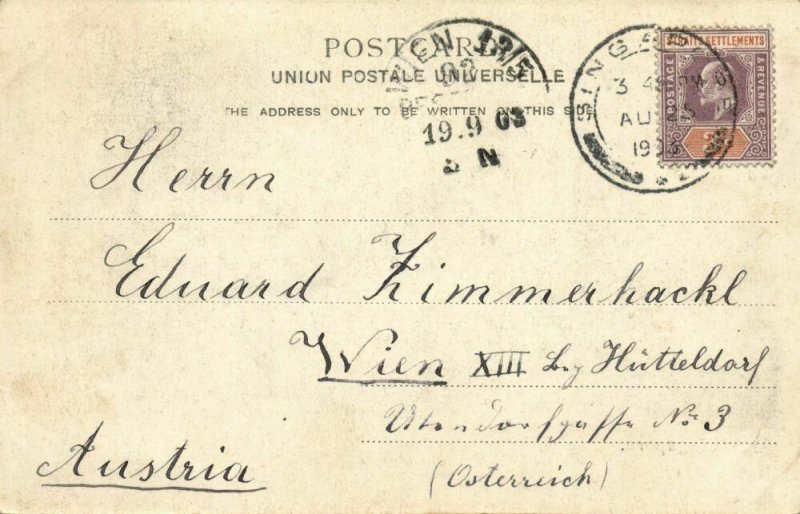 POSTCARD
UNION POSTALE UNIVERSELLE
THE ADDRESS ONLY TO BE WRITTEN ON THIS SIDE
WIEN 13/5
19.9 03
N
SINGAPORE
AU
STRAITS SETTLEMENTS
POSTAGE & REVENUE
Herrn
Eduard Zimmerhackl
Wien XIII Hütteldorf
No 3
Austria
(Österreich)